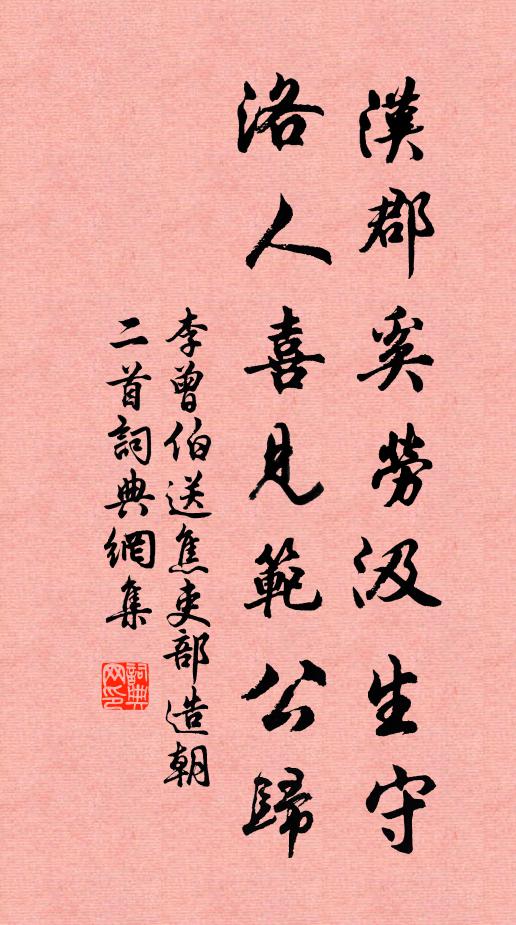 漢郡奚勞汲生守
洛人喜見範公歸
李曾伯送焦吏部造朝
二首詞典網集
詞典網印